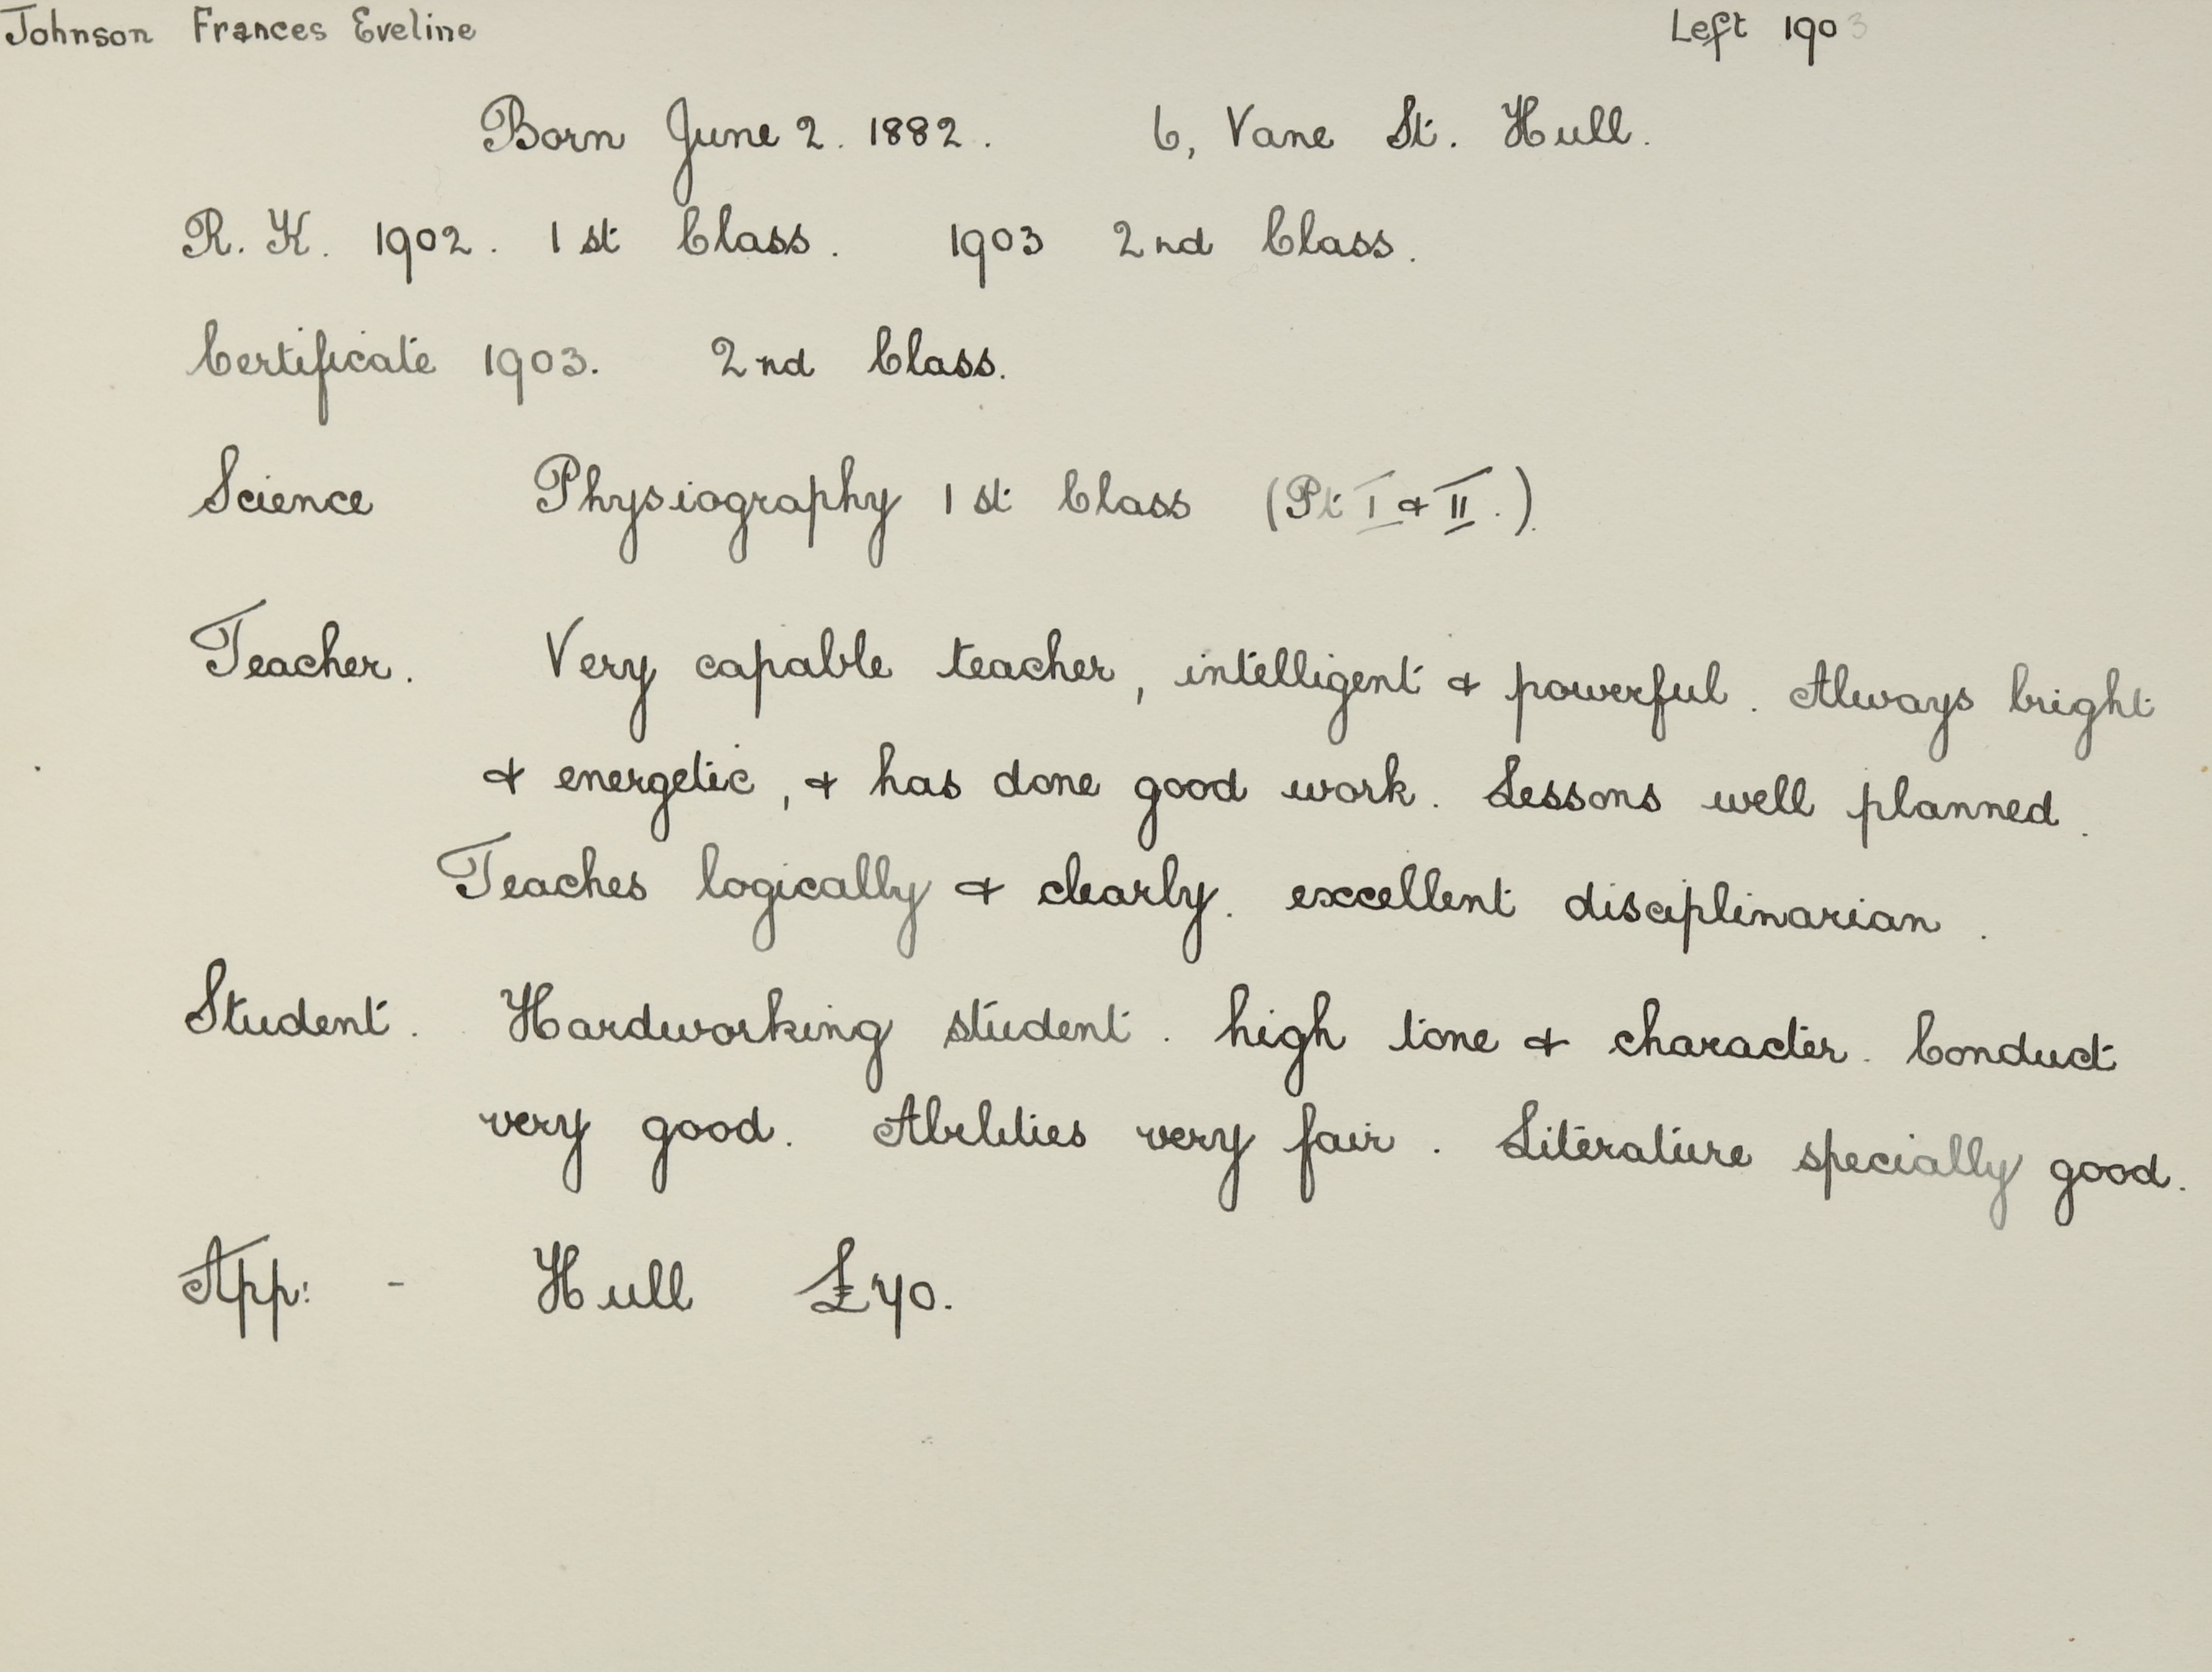 Johnson Frances Eveline Left 1903
Born June 2. 1882. 6, Vane St. Hull.
R. K. 1902. 1st Class. 1903 2nd Class.
Certificate 1903. 2nd Class.
Science Physiography 1st Class (Pt I & II.)
Teacher. Very capable teacher, intelligent & powerful. Always bright
& energetic, & has done good work. Lessons well planned.
Teaches logically & clearly. excellent disciplinarian.
Student. Hardworking student. high tone & character. Conduct
very good. Abilities very fair. Literature specially good.
App: - Hull £70.